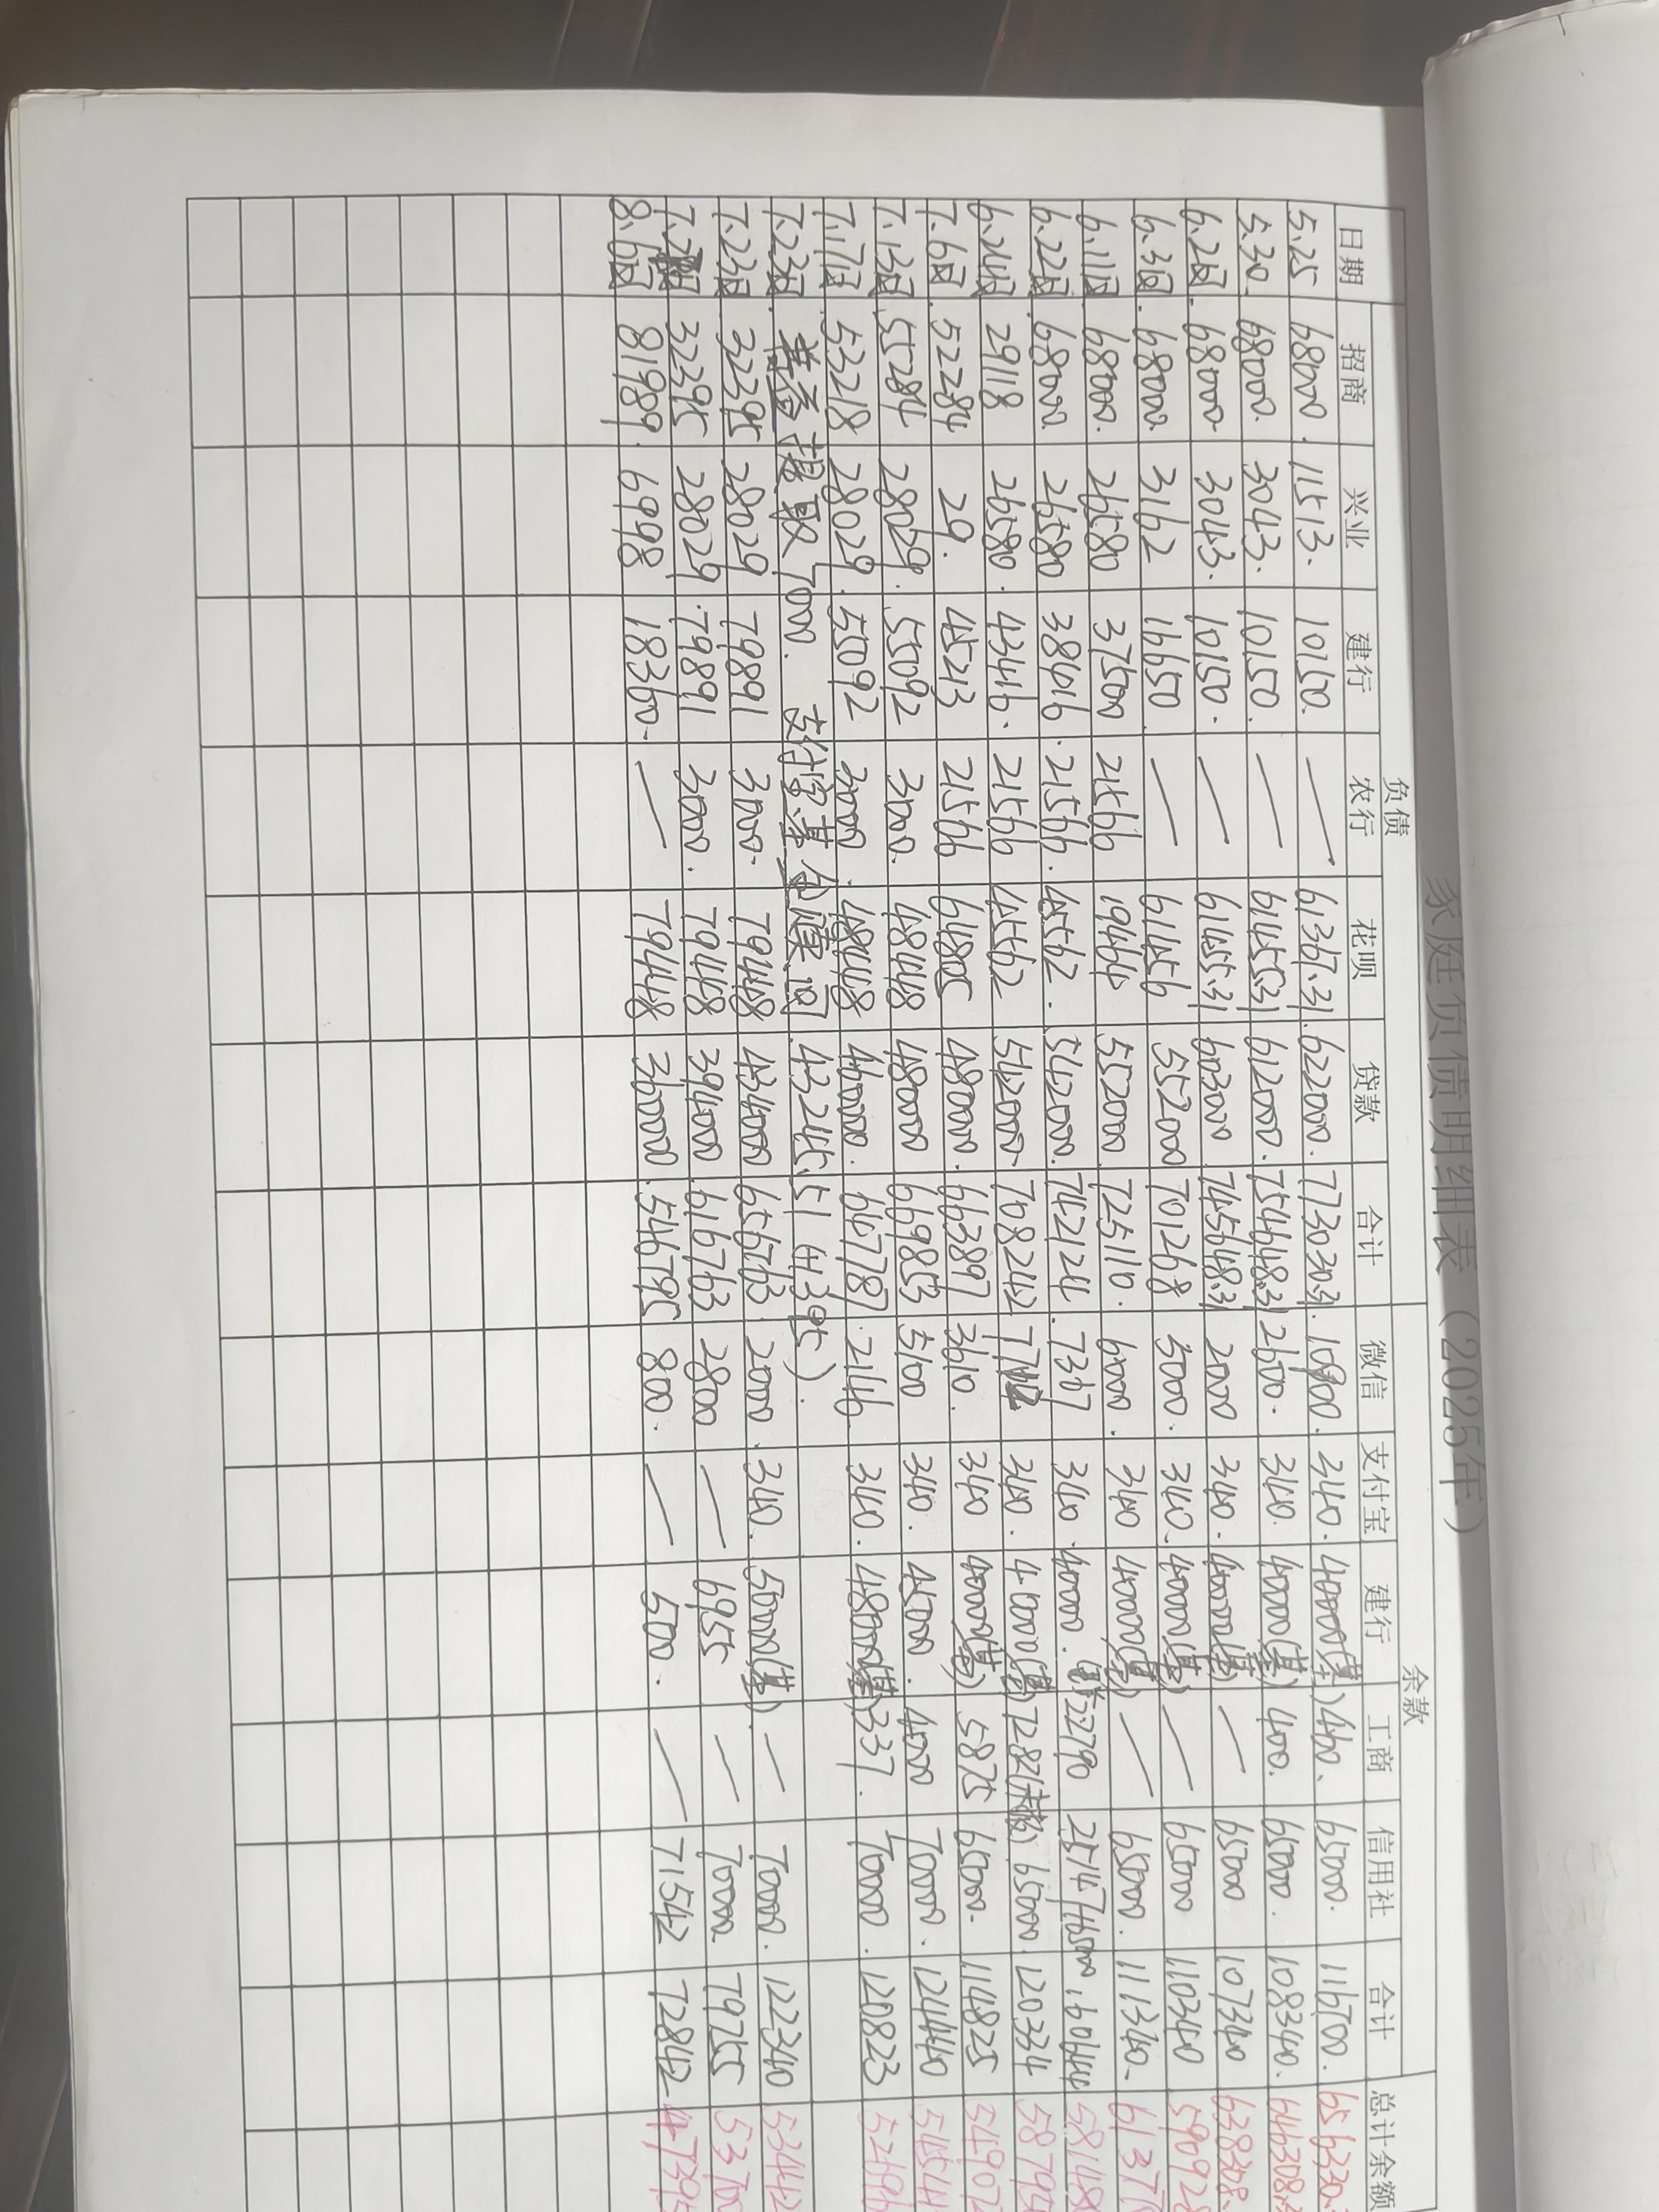 家庭负债明细表（2025年）
负债 余款
日期 招商 兴业 建行 农行 花呗 贷款 合计 微信 支付宝 建行 工商 信用社 合计 总计余额
5.25 68000. 11513. 10150. — 61367.31. 622000. 773030.31. 10900. 340. 40000(基) 460. 65000. 116700. 656330.
5.30. 68000. 3043. 10150. — 61455.31 612000. 754648.31 2600. 340. 40000(基) 400. 65000. 108340. 646308.
6.2日. 68000 3043. 10150. — 61455.31 603000 745648.31 2000 340. 40000(基) — 65000 107340 638308.
6.3日. 68000 3162 16650. — 61456 552000 701268 5000. 340. 40000(基) — 65000 110340 590928
6.11日. 68000. 26580 37500 21566 19464 552000. 725110. 6000. 340 40000(基) — 65000. 111340.
6.22日. 68000. 26580 38416. 21566. 45562. 542000. 742124. 7367 340. 40000.
6.24日 29118 26580. 43416. 21566 45562 542000. 708242 340. 40000(基) 65000. 120334
7.6日. 52284 29. 45213 21566 64805 480000. 663897 3610. 340 40000(基) 5875 65000. 114825
7.13日. 55284 28029. 55092 3000. 48448 480000 669853 5100 340. 45000. 4000 70000. 124440
7.17日. 53218 28029. 55092 3000. 48448 460000. 647787 2146. 340. 48000(基) 337. 70000. 120823
7.23日. 提取7000. 支付宝基金赎回43245.51(4395).
7.23日. 32395 28029 79891 3000. 79448 434000 656763. 2000. 340. 50000(基) — 70000. 122340 534423
32395 28029. 79891 3000. 79448 394000 616763 2800 — 6955 — 70000. 79755
8.6日 81989. 6998 18360. — 79448 360000. 546795 800. — 500. — 71542 72842